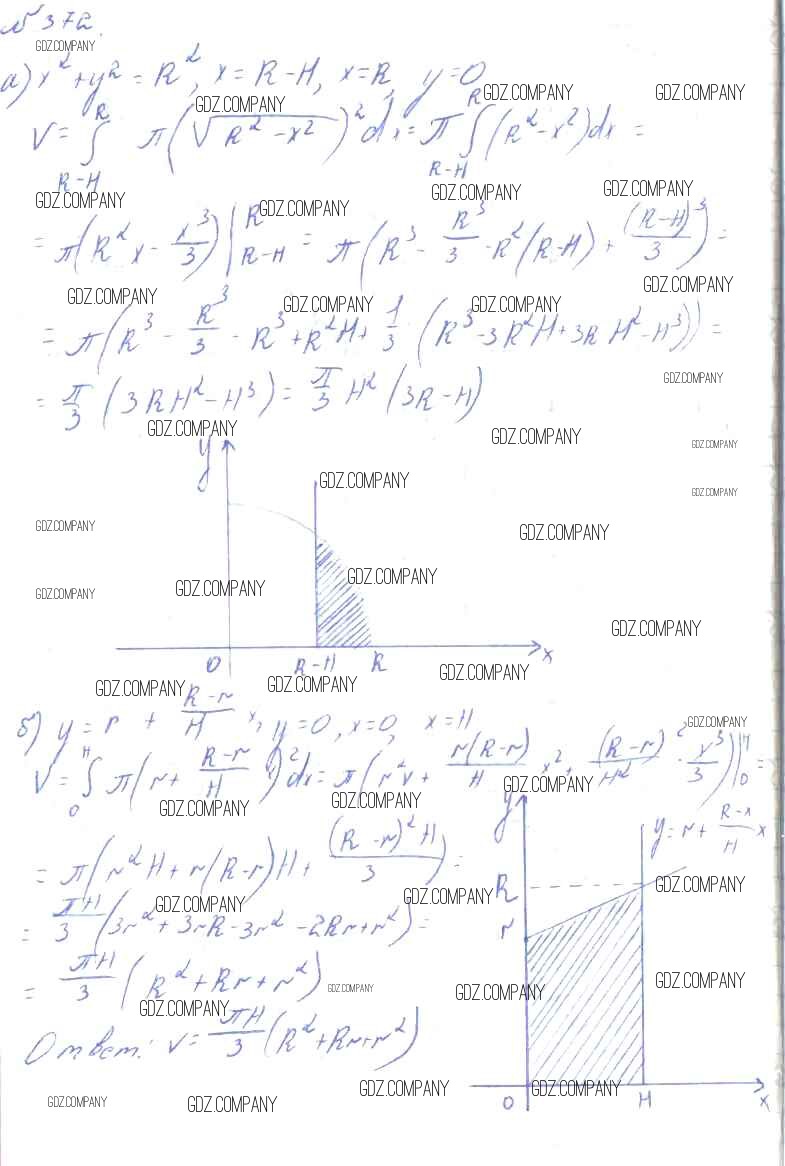 № 372.
GDZ.COMPANY
а) x² + y² = R², x = R−H, x = R, y = 0
GDZ.COMPANY GDZ.COMPANY GDZ.COMPANY
V = ∫_{R−H}^{R} π(√(R² − x²))² dx = π ∫_{R−H}^{R} (R² − x²) dx =
GDZ.COMPANY GDZ.COMPANY GDZ.COMPANY
= π(R²x − x³/3) |_{R−H}^{R} = π(R³ − R³/3 − R²(R−H) + (R−H)³/3) =
GDZ.COMPANY
GDZ.COMPANY GDZ.COMPANY GDZ.COMPANY GDZ.COMPANY
= π(R³ − R³/3 − R³ + R²H + 1/3 (R³ − 3R²H + 3RH² − H³)) =
GDZ.COMPANY
= π/3 (3RH² − H³) = π/3 H² (3R − H)
GDZ.COMPANY GDZ.COMPANY GDZ.COMPANY
y
GDZ.COMPANY GDZ.COMPANY
GDZ.COMPANY GDZ.COMPANY
GDZ.COMPANY GDZ.COMPANY GDZ.COMPANY
GDZ.COMPANY
O R−H R x
GDZ.COMPANY GDZ.COMPANY GDZ.COMPANY
б) y = r + (R−r)/H x, y = 0, x = 0, x = H
GDZ.COMPANY
V = ∫_{0}^{H} π(r + (R−r)/H x)² dx = π(r²x + r(R−r)/H x² + (R−r)²/H² · x³/3) |_{0}^{H} =
GDZ.COMPANY GDZ.COMPANY GDZ.COMPANY
y
y = r + (R−x)/H x
= π(r²H + r(R−r)H + (R−r)²H/3) =
R
GDZ.COMPANY GDZ.COMPANY GDZ.COMPANY
= πH/3 (3r² + 3rR − 3r² − 2Rr + r²) =
r
= πH/3 (R² + Rr + r²)
GDZ.COMPANY GDZ.COMPANY GDZ.COMPANY GDZ.COMPANY
Ответ: V = πH/3 (R² + Rr + r²)
GDZ.COMPANY GDZ.COMPANY GDZ.COMPANY GDZ.COMPANY
O H x